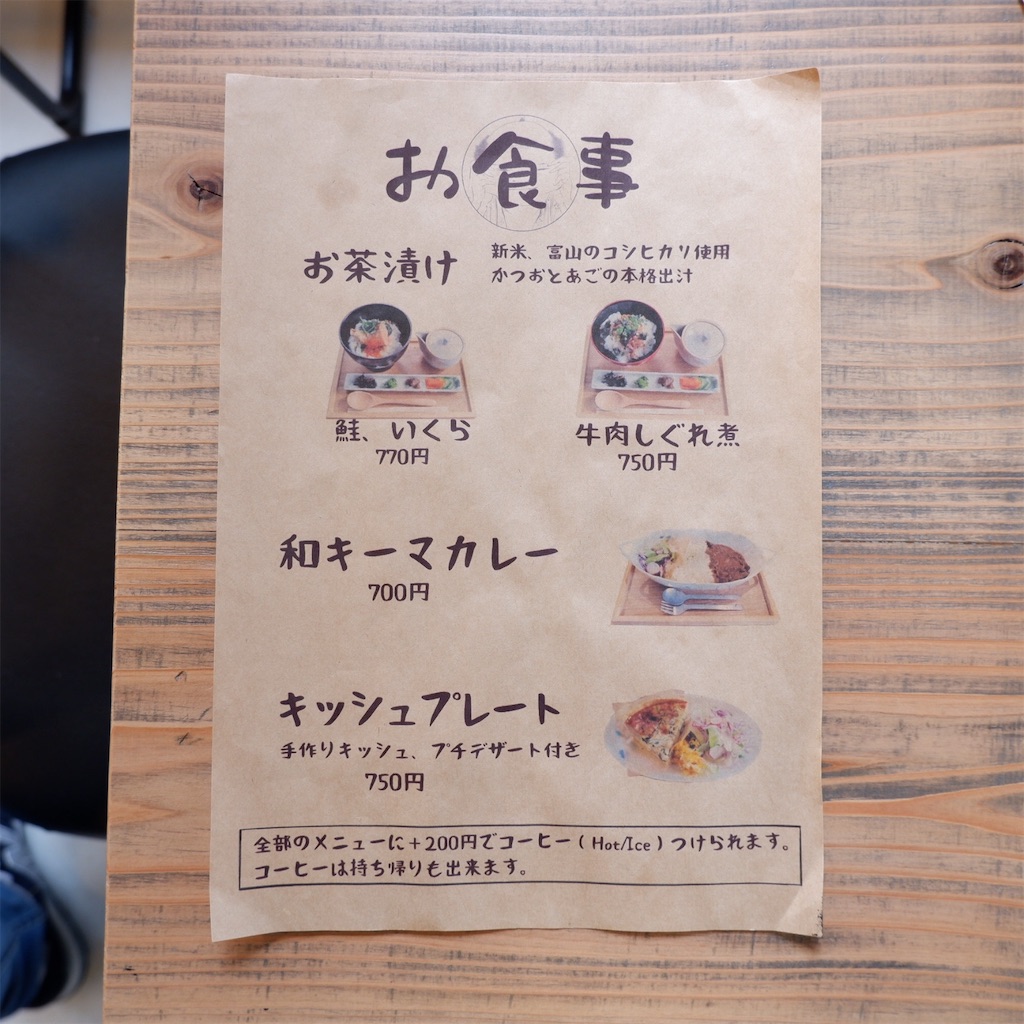 お食事
お茶漬け
新米、富山のコシヒカリ使用
かつおとあごの本格出汁
鮭、いくら
770円
牛肉しぐれ煮
750円
和キーマカレー
700円
キッシュプレート
手作りキッシュ、プチデザート付き
750円
全部のメニューに+200円でコーヒー(Hot/Ice)つけられます。
コーヒーは持ち帰りも出来ます。